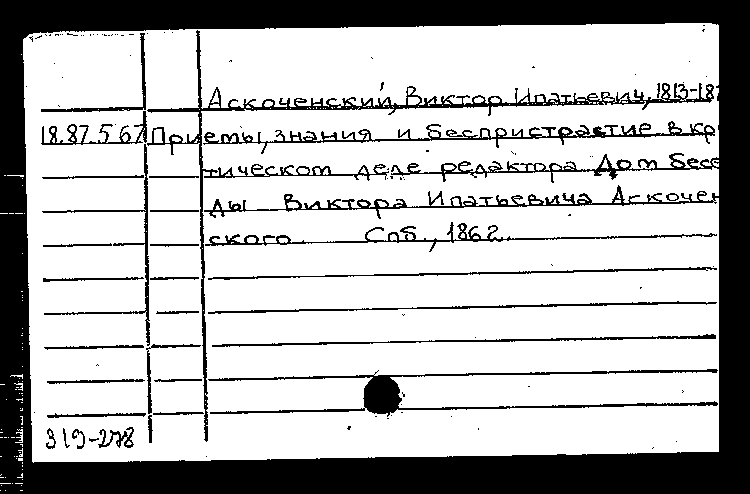 Аскоченский, Виктор Ипатьевич, 1813-187
18.87.5.67 Приемы, знания и беспристрастие в кри
тическом деле редактора Дом. Бесе
ды Виктора Ипатьевича Аскочен
ского. Спб., 1862.
319-278